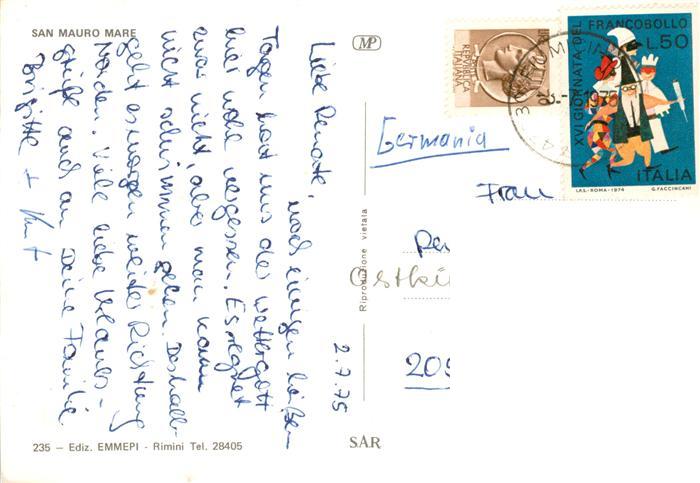 SAN MAURO MARE
Liebe Renate,
nach einigen heißen
Tagen hat uns der Wettergott
hier wohl vergessen. Es regnet
zwar nicht, aber man kann
nicht schwimmen gehen. Deshalb
geht es morgen weiter Richtung
Norden. Viele liebe Urlaubs-
grüße auch an Deine Familie
Brigitte + Kurt
2.7.75
235 – Ediz. EMMEPI - Rimini Tel. 28405
MP
Riproduzione vietata
SAR
REPUBBLICA
ITALIANA
XVI GIORNATA DEL FRANCOBOLLO
L.50
ITALIA
I.P.S.-ROMA-1974
G. FACCINCANI
1975
Germania
Frau
Ren
Ostki
205